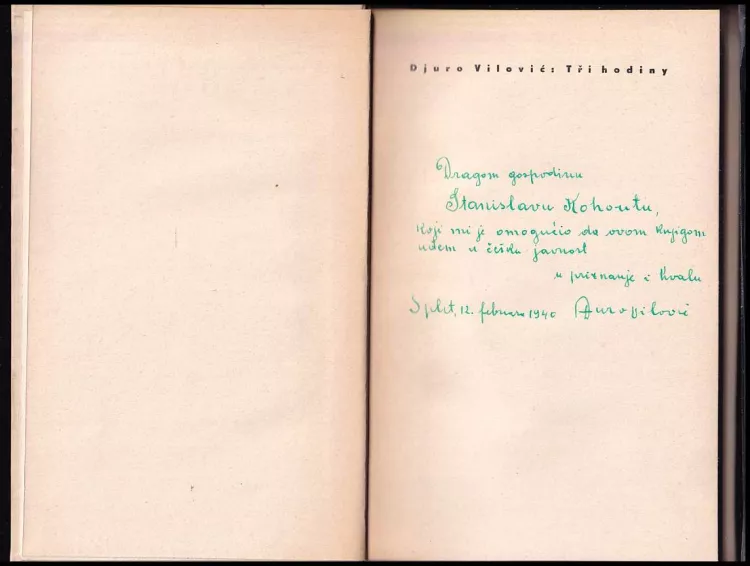 Djuro Vilović: Tři hodiny
Dragom gospodinu
Stanislavu Kohoutu,
koji mi je omogućio da ovom knjigom
uđem u češku javnost
u priznanje i hvalu
Split, 12. februara 1940 Đuro Vilović